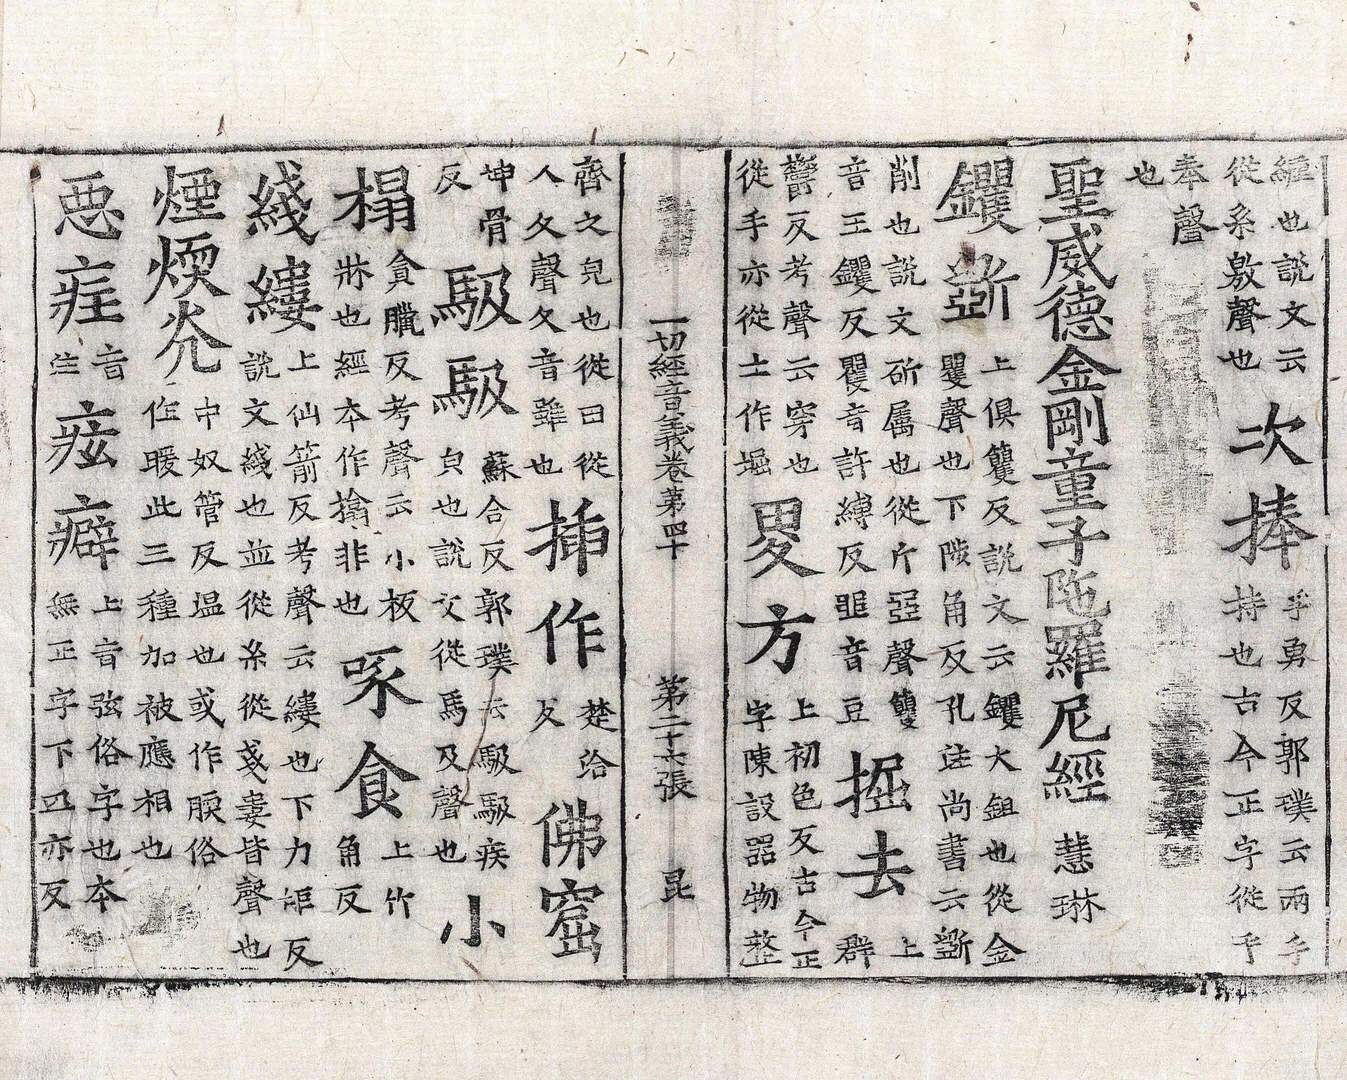 縆也說文云
從糸敫聲也
次捧
乎勇反郭璞云兩手
持也古今正字從手
奉聲
也
聖威德金剛童子陁羅尼經
慧琳
钁斵
上俱籰反說文云钁大鉏也從金
矍聲也下陟角反孔注尚書云斵
削也說文斫属也從斤
音王钁反矍音許縛反
聲籰
音豆
掘去
上
群
欎反考聲云穿也
從手亦從土作堀
畟方
上初色反古今正
字陳設器物整
一切經音義卷第四十
第二十六張
昆
齊之皃也從田從
人夂聲夂音雖也
揷作
楚洽
反
佛窟
坤骨
反
馺馺
蘇合反郭璞云馺馺疾
皃也說文從馬及聲也
小
榻
貪臘反考聲云小板
牀也經本作搨非也
啄食
上竹
角反
綫縷
上仙箭反考聲云縷也下力矩反
說文綫也並從糸從戔婁皆聲也
煙煗炎
中奴管反温也或作㬉俗
作暖此三種加被應相也
惡疰
音
注
痃癖
上音弦俗字也本
無正字下匹亦反